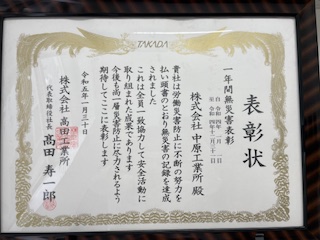 TAKADA
表彰状
一年間無災害表彰
自 令和四年一月一日
至 令和四年十二月三十一日
株式会社 中原工業所 殿
貴社は労働災害防止に不断の努力を
払い頭書のとおり無災害の記録を達成
されました
これは全員一致協力して安全活動に
取り組まれた成果であります
今後も尚一層災害防止に尽力されるよう
期待してここに表彰します
令和五年一月三十日
株式会社 高田工業所
代表取締役社長 髙田 寿一郎